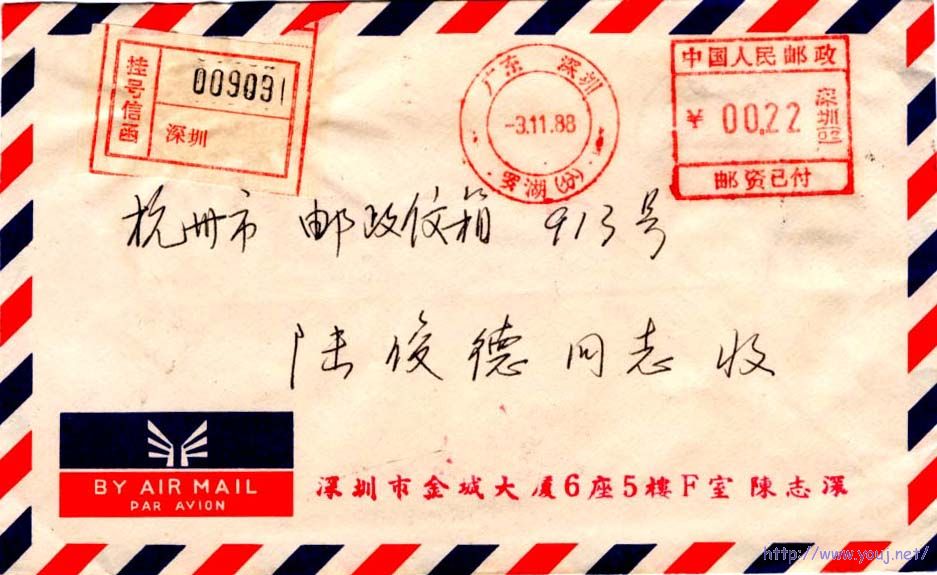 挂号信函
009091
深圳
广东 深圳
-3.11.88
罗湖(分)
中国人民邮政
¥ 00.22
深圳(02)
邮资已付
杭州市 邮政信箱 913号
陆俊德同志 收
BY AIR MAIL
PAR AVION
深圳市金城大厦6座5樓F室 陳志深
http://www.youj.net/